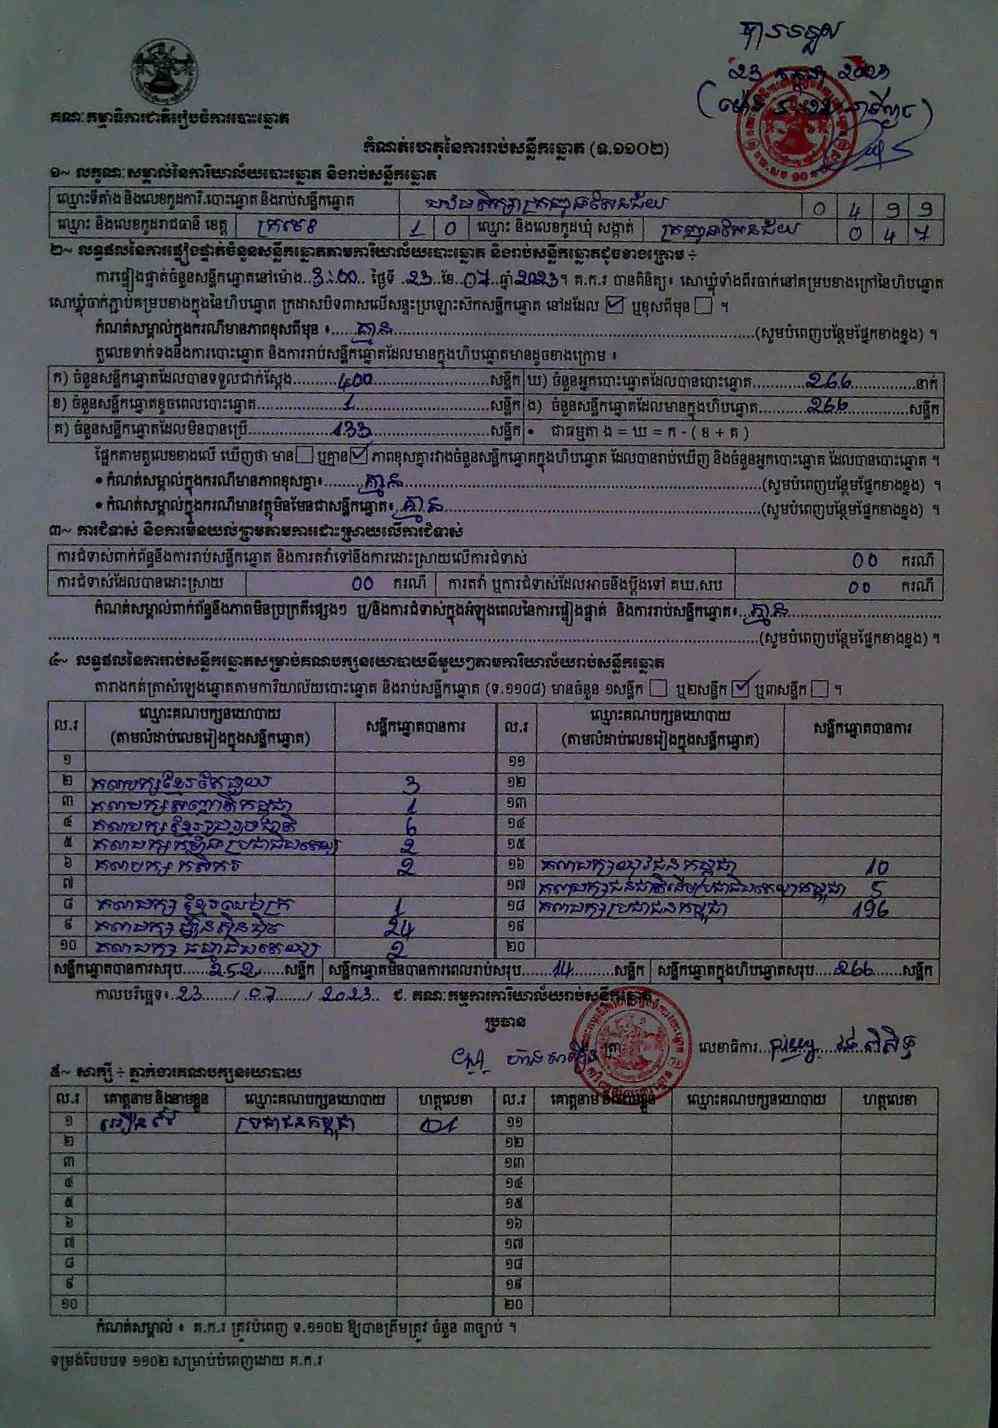 បានទទួល
២៣ កក្កដា ២០២៣
គណៈកម្មាធិការជាតិរៀបចំការបោះឆ្នោត
កំណត់ហេតុនៃការរាប់សន្លឹកឆ្នោត (ទ.១១០២)
១~ លក្ខណៈសម្គាល់នៃការិយាល័យបោះឆ្នោត និងរាប់សន្លឹកឆ្នោត
ឈ្មោះទីតាំង និងលេខកូដការិ.បោះឆ្នោត និងរាប់សន្លឹកឆ្នោត 0 4 9 9
ឈ្មោះ និងលេខកូដរាជធានី ខេត្ត ក្រចេះ 1 0 ឈ្មោះ និងលេខកូដឃុំ សង្កាត់ 0 4 7
២~ លទ្ធផលនៃការផ្ទៀងផ្ទាត់ចំនួនសន្លឹកឆ្នោតតាមការិយាល័យបោះឆ្នោត និងរាប់សន្លឹកឆ្នោតដូចខាងក្រោម ÷
ការផ្ទៀងផ្ទាត់ចំនួនសន្លឹកឆ្នោតនៅម៉ោង..3:00.. ថ្ងៃទី ..23..ខែ..07..ឆ្នាំ2023។ គ.ក.រ បានពិនិត្យ៖ សោឃ្លុំទាំងពីរចាក់នៅគម្របខាងក្រៅនៃហិបឆ្នោត
សោឃ្លុំចាក់ភ្ជាប់គម្របខាងក្នុងនៃហិបឆ្នោត ក្រដាសបិទពាសលើសន្ទះប្រឡោះស៊កសន្លឹកឆ្នោត នៅដដែល ☑ ឬខុសពីមុន ☐ ។
កំណត់សម្គាល់ក្នុងករណីមានភាពខុសពីមុន ៖......គ្មាន......(សូមបំពេញបន្ថែមផ្នែកខាងខ្នង) ។
តួលេខទាក់ទងនឹងការបោះឆ្នោត និងការរាប់សន្លឹកឆ្នោតដែលមានក្នុងហិបឆ្នោតមានដូចខាងក្រោម ៖
ក) ចំនួនសន្លឹកឆ្នោតដែលបានទទួលជាក់ស្តែង.........400.........សន្លឹក ឃ) ចំនួនអ្នកបោះឆ្នោតដែលបានបោះឆ្នោត.........266.........នាក់
ខ) ចំនួនសន្លឹកឆ្នោតខូចពេលបោះឆ្នោត.........1.........សន្លឹក ង) ចំនួនសន្លឹកឆ្នោតដែលមានក្នុងហិបឆ្នោត.........266.........សន្លឹក
គ) ចំនួនសន្លឹកឆ្នោតដែលមិនបានប្រើ.........133.........សន្លឹក • ជាធម្មតា ង = ឃ = ក - ( ខ + គ )
ផ្អែកតាមតួលេខខាងលើ ឃើញថា មាន ☐ ឬគ្មាន ☑ ភាពខុសគ្នារវាងចំនួនសន្លឹកឆ្នោតក្នុងហិបឆ្នោត ដែលបានរាប់ឃើញ និងចំនួនអ្នកបោះឆ្នោត ដែលបានបោះឆ្នោត ។
• កំណត់សម្គាល់ក្នុងករណីមានភាពខុសគ្នា៖.........គ្មាន.........(សូមបំពេញបន្ថែមផ្នែកខាងខ្នង) ។
• កំណត់សម្គាល់ក្នុងករណីមានវត្ថុមិនមែនជាសន្លឹកឆ្នោត៖ គ្មាន.........(សូមបំពេញបន្ថែមផ្នែកខាងខ្នង) ។
៣~ ការជំទាស់ និងការមិនយល់ព្រមតាមការដោះស្រាយលើការជំទាស់
ការជំទាស់ពាក់ព័ន្ធនឹងការរាប់សន្លឹកឆ្នោត និងការតវ៉ាទៅនឹងការដោះស្រាយលើការជំទាស់ 00 ករណី
ការជំទាស់ដែលបានដោះស្រាយ 00 ករណី ការតវ៉ា ឬការជំទាស់ដែលអាចនឹងប្តឹងទៅ គឃ.សប 00 ករណី
កំណត់សម្គាល់ពាក់ព័ន្ធនឹងភាពមិនប្រក្រតីផ្សេងៗ ឬ/និងការជំទាស់ក្នុងអំឡុងពេលនៃការផ្ទៀងផ្ទាត់ និងការរាប់សន្លឹកឆ្នោត៖...គ្មាន.........
.........(សូមបំពេញបន្ថែមផ្នែកខាងខ្នង) ។
៤~ លទ្ធផលនៃការរាប់សន្លឹកឆ្នោតសម្រាប់គណបក្សនយោបាយនីមួយៗតាមការិយាល័យរាប់សន្លឹកឆ្នោត
តារាងកត់ត្រាសំឡេងឆ្នោតតាមការិយាល័យបោះឆ្នោត និងរាប់សន្លឹកឆ្នោត (ទ.១១០៨) មានចំនួន ១សន្លឹក ☐ ឬ២សន្លឹក ☑ ឬ៣សន្លឹក ☐ ។
ល.រ ឈ្មោះគណបក្សនយោបាយ (តាមលំដាប់លេខរៀងក្នុងសន្លឹកឆ្នោត) សន្លឹកឆ្នោតបានការ ល.រ ឈ្មោះគណបក្សនយោបាយ (តាមលំដាប់លេខរៀងក្នុងសន្លឹកឆ្នោត) សន្លឹកឆ្នោតបានការ
១ ១១
២ 3 ១២
៣ គណបក្សសញ្ជាតិកម្ពុជា 1 ១៣
៤ គណបក្សខ្មែររួបរួមជាតិ 6 ១៤
៥ គណបក្សកម្លាំងប្រជាធិបតេយ្យ 2 ១៥
៦ គណបក្សកសិករ 2 ១៦ គណបក្សយុវជនកម្ពុជា 10
៧ ១៧ គណបក្សជនជាតិដើមប្រជាធិបតេយ្យកម្ពុជា 5
៨ គណបក្សខ្មែរឈប់ក្រ 1 ១៨ គណបក្សប្រជាជនកម្ពុជា 196
៩ គណបក្សហ្វ៊ុនស៊ិនប៉ិច 24 ១៩
១០ គណបក្សធម្មាធិបតេយ្យ 2 ២០
សន្លឹកឆ្នោតបានការសរុប......252......សន្លឹក សន្លឹកឆ្នោតមិនបានការពេលរាប់សរុប......14......សន្លឹក សន្លឹកឆ្នោតក្នុងហិបឆ្នោតសរុប......266......សន្លឹក
កាលបរិច្ឆេទ៖..23....../..07....../..2023.. ជ. គណៈកម្មការការិយាល័យរាប់សន្លឹកឆ្នោត
ប្រធាន
លេខាធិការ
៥~ សាក្សី ÷ ភ្នាក់ងារគណបក្សនយោបាយ
ល.រ គោត្តនាម និងនាមខ្លួន ឈ្មោះគណបក្សនយោបាយ ហត្ថលេខា ល.រ គោត្តនាម និងនាមខ្លួន ឈ្មោះគណបក្សនយោបាយ ហត្ថលេខា
១ ប្រជាជនកម្ពុជា ១១
២ ១២
៣ ១៣
៤ ១៤
៥ ១៥
៦ ១៦
៧ ១៧
៨ ១៨
៩ ១៩
១០ ២០
កំណត់សម្គាល់ ៖ គ.ក.រ ត្រូវបំពេញ ទ.១១០២ ឱ្យបានត្រឹមត្រូវ ចំនួន ៣ច្បាប់ ។
ទម្រង់បែបបទ ១១០២ សម្រាប់បំពេញដោយ គ.ក.រ